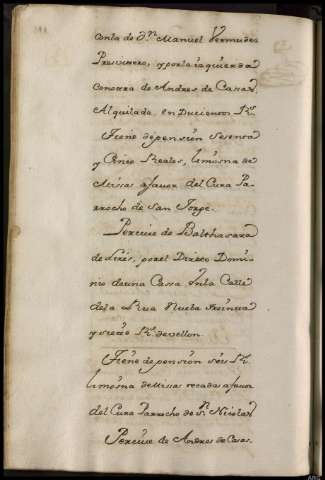 conla de Dn. Manuel Vermudes
Presvitero, y por la izquierda
con otra de Andres de Casas.
Alquilada, en Ducientos Rs.
Tiene de pensión Sesenta
y Cinco Reales, limosna de
Missas a favor del Cura Pa-
rrocho de San Jorge.
Percive de Balthasara
de Lires, por el Directo Domi-
nio de una Cassa en la Calle
de la Rua Nueba treinta
y siete Rs. de vellon.
Tiene de pensión seis Rs.
limosna de Missa rezada a favor
del Cura Parrocho de Sn. Nicolas
Percive de Andres de Casas.